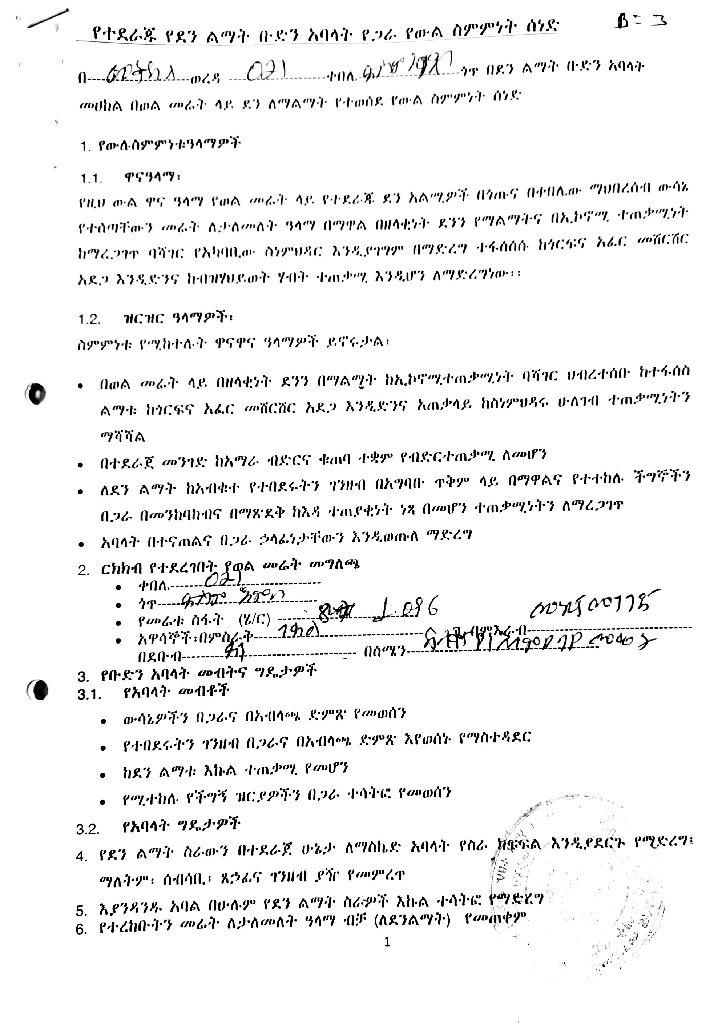 የተደራጁ የደን ልማት ቡድን አባላት የጋራ የውል ስምምነት ሰነድ
B = 3
በ ወረዳ 021 ቀበሌ ጎጥ በደን ልማት ቡድን አባላት
መሀከል በወል መሬት ላይ ደን ለማልማት የተወሰደ የውል ስምምነት ሰነድ
1. የውሉስምምነቱዓላማዎች
1.1. ዋናዓላማ፡
የዚህ ውል ዋና ዓላማ የወል መሬት ላይ የተደራጁ ደን አልሚዎች በጎጡና በቀበሌው ማህበረሰብ ውሳኔ
የተሰጣቸውን መሬት ለታለመለት ዓላማ በማዋል በዘላቂነት ደንን የማልማትና በኢኮኖሚ ተጠቃሚነት
ከማረጋገጥ ባሻገር የአካባቢው ስነምህዳር እንዲያገግም በማድረግ ተፋሰሰሱ ከጎርፍና አፈር መሸርሸር
አደጋ እንዲድንና ከብዝሃህይወት ሃብት ተጠቃሚ እንዲሆን ለማድረግነው፡፡
1.2. ዝርዝር ዓላማዎች፡
ስምምነቱ የሚከተሉት ዋናዋና ዓላማዎች ይኖሩታል፡
• በወል መሬት ላይ በዘላቂነት ደንን በማልማት ከኢኮኖሚተጠቃሚነት ባሻገር ህብረተሰቡ ከተፋሰስ
ልማቱ ከጎርፍና አፈር መሸርሸር አደጋ እንዲድንና አጠቃላይ ከስነምህዳሩ ሁለገብ ተጠቃሚነትን
ማሻሻል
• በተደራጀ መንገድ ከአማራ ብድርና ቁጠባ ተቋም የብድርተጠቃሚ ለመሆን
• ለደን ልማት ከአብቁተ የተበደሩትን ገንዘብ በአግባቡ ጥቅም ላይ በማዋልና የተተከሉ ችግኞችን
በጋራ በመንከባከብና በማጽደቅ ከእዳ ተጠያቂነት ነጻ በመሆን ተጠቃሚነትን ለማረጋገጥ
• አባላት በተናጠልና በጋራ ኃላፊነታቸውን እንዲወጡ ማድረግ
2. ርክክብ የተደረገበት የወል መሬት መግለጫ
• ቀበሌ 021
• ጎጥ
• የመሬቱ ስፋት (ሄ/ር)
• አዋሳኞች፡በምስራቅ በምእራብ
በደቡብ በሰሜን
3. የቡድን አባላት መብትና ግዴታዎች
3.1. የአባላት መብቶች
• ውሳኔዎችን በጋራና በአብላጫ ድምጽ የመወሰን
• የተበደሩትን ገንዘብ በጋራና በአብላጫ ድምጽ እየወሰኑ የማስተዳደር
• ከደን ልማቱ እኩል ተጠቃሚ የመሆን
• የሚተከሉ የችግኝ ዝርያዎችን በጋራ ተሳትፎ የመወሰን
3.2. የአባላት ግዴታዎች
4. የደን ልማት ስራውን በተደራጀ ሁኔታ ለማስኬድ አባላት የስራ ክፍፍል እንዲያደርጉ የሚድረግ፤
ማለትም፡ ሰብሳቢ፡ ጸኃፊና ገንዘብ ያዥ የመምረጥ
5. እያንዳንዱ አባል በሁሉም የደን ልማት ስራዎች እኩል ተሳትፎ የማድረግ
6. የተረከቡትን መሬት ለታለመለት ዓላማ ብቻ (ለደንልማት) የመጠቀም
1